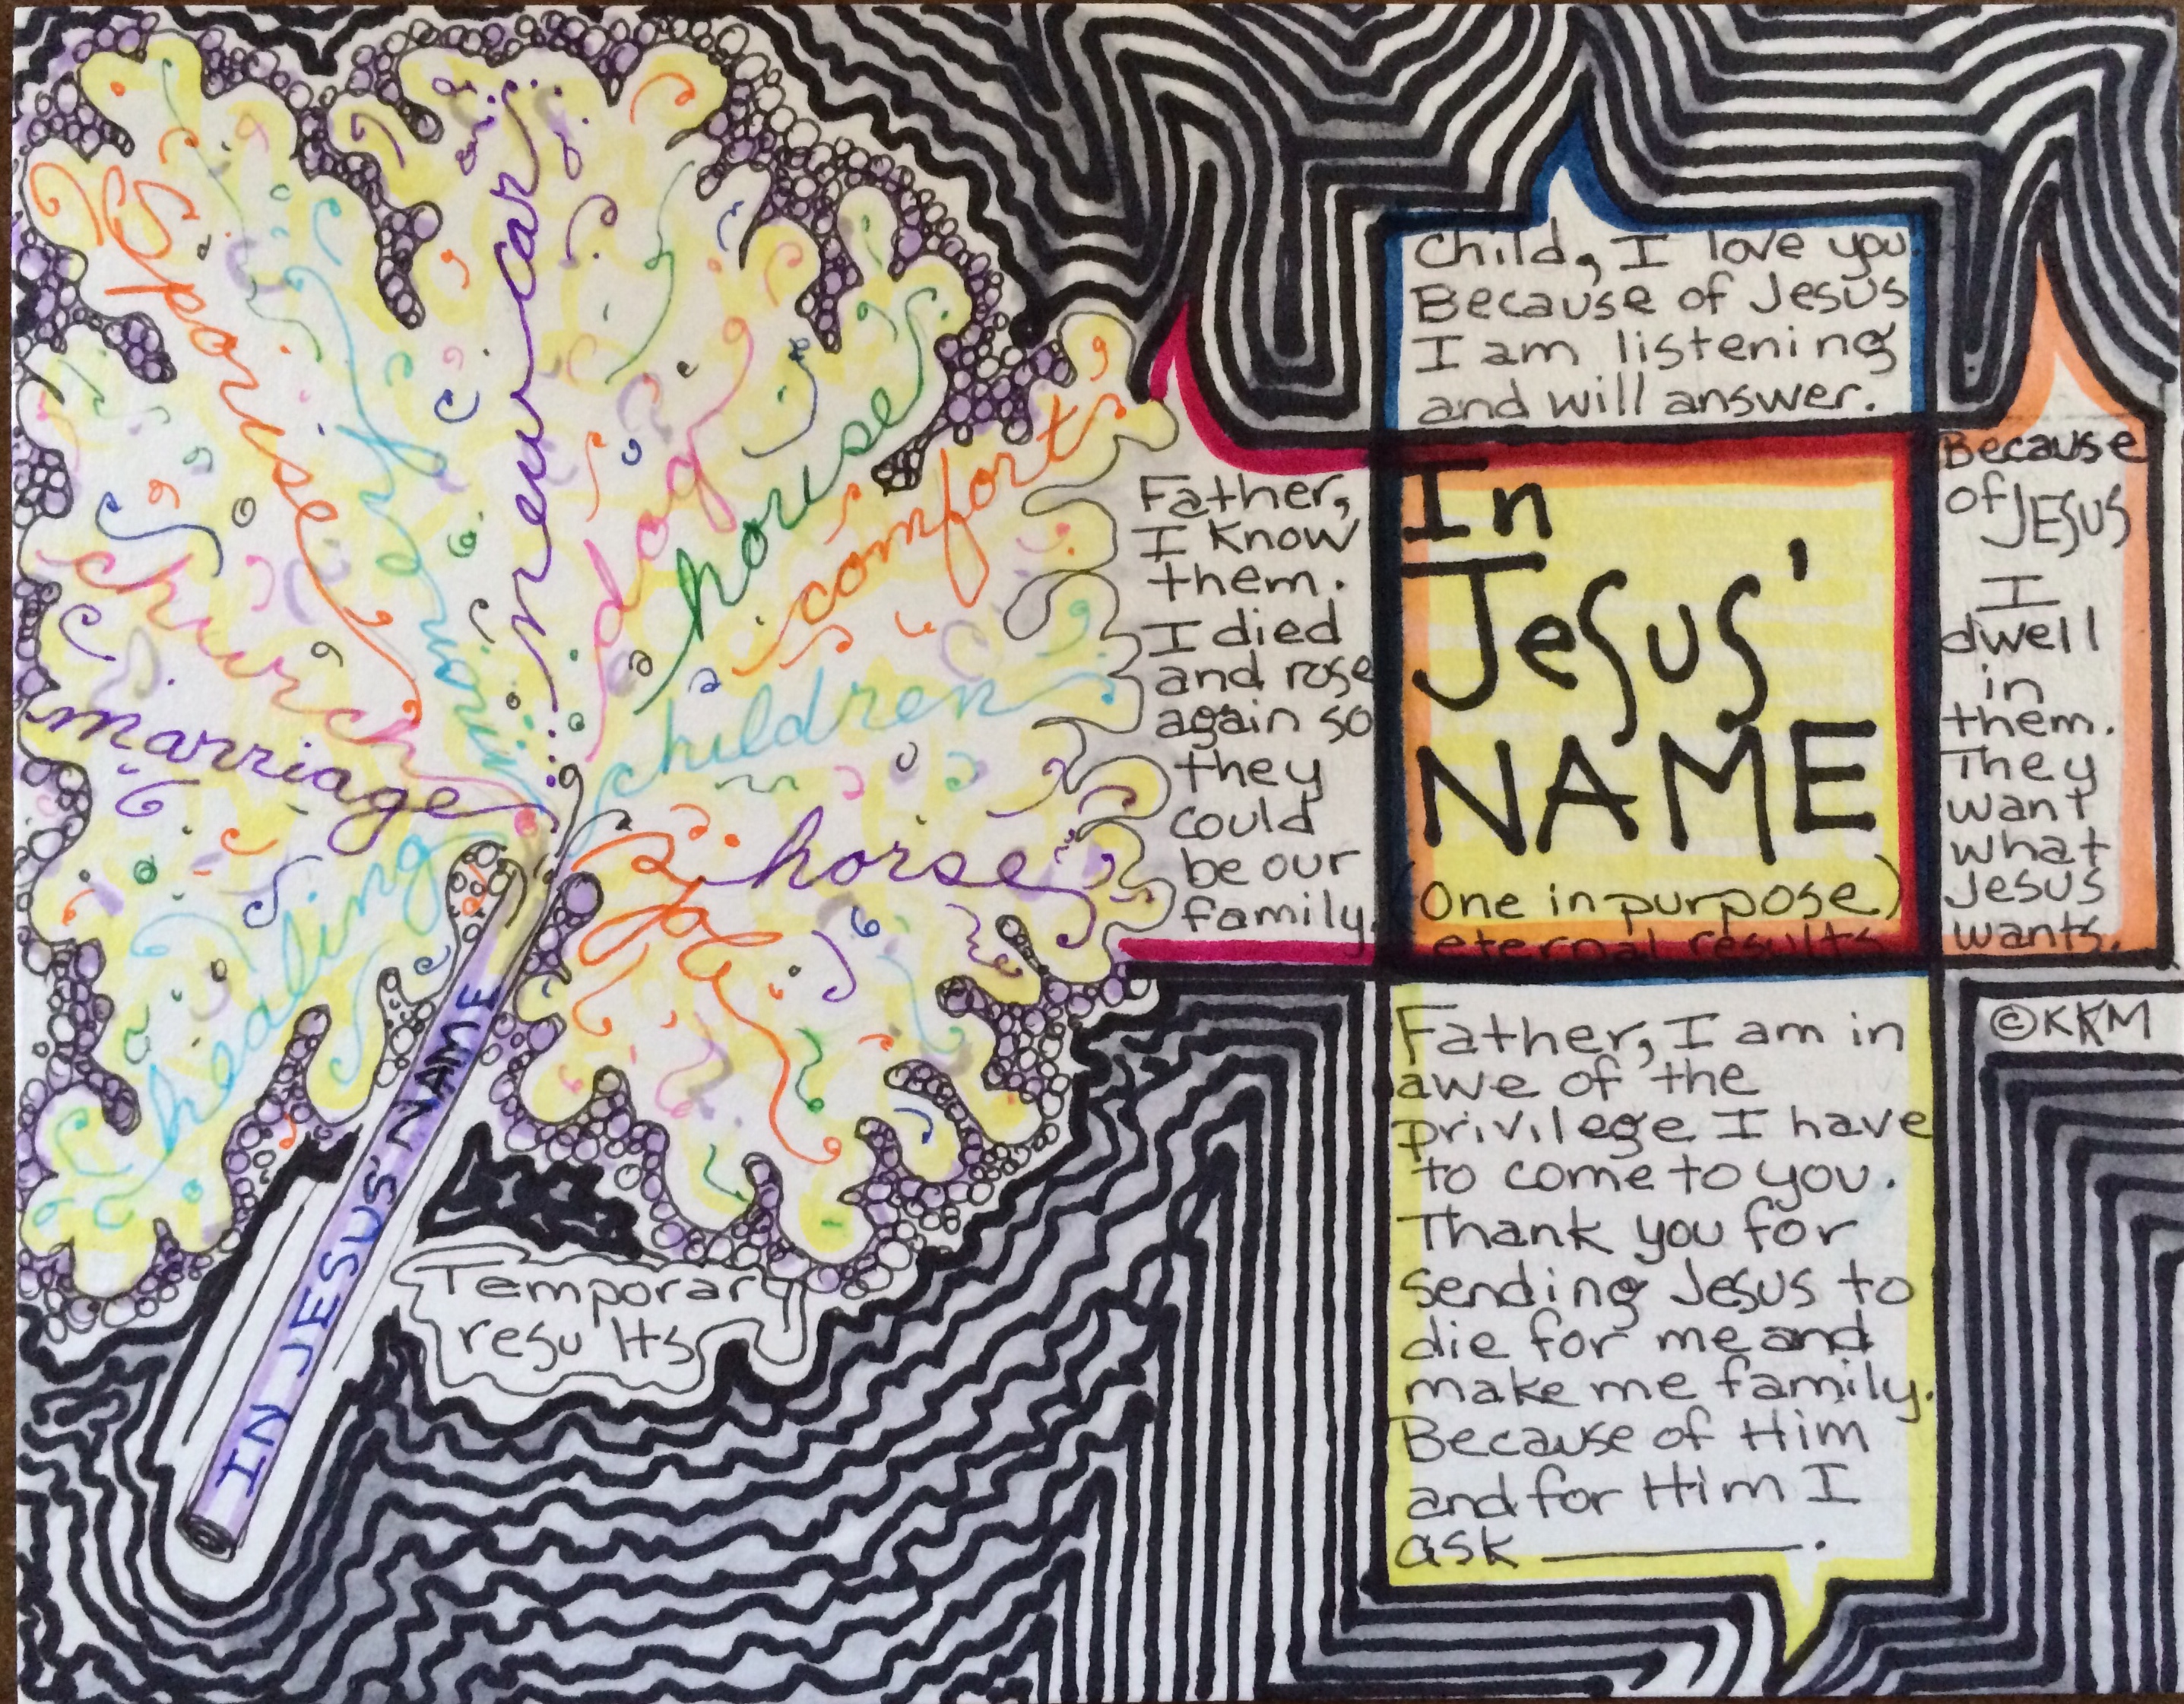 Spouse
new car
dog
house
comfort
church
work
marriage
children
healing
horse
IN JESUS' NAME
Temporary
results
Child, I love you.
Because of Jesus
I am listening
and will answer.
Father,
I know
them.
I died
and rose
again so
they
could
be our
family.
In
Jesus'
NAME
(One in purpose)
eternal results
Because
of JESUS
I
dwell
in
them.
They
want
what
Jesus
wants.
Father, I am in
awe of the
privilege I have
to come to you.
Thank you for
sending Jesus to
die for me and
make me family.
Because of Him
and for Him I
ask ________.
©KKM